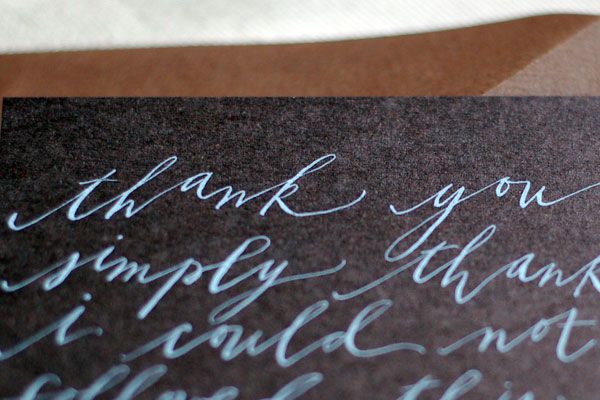 thank you
simply thank
i could not